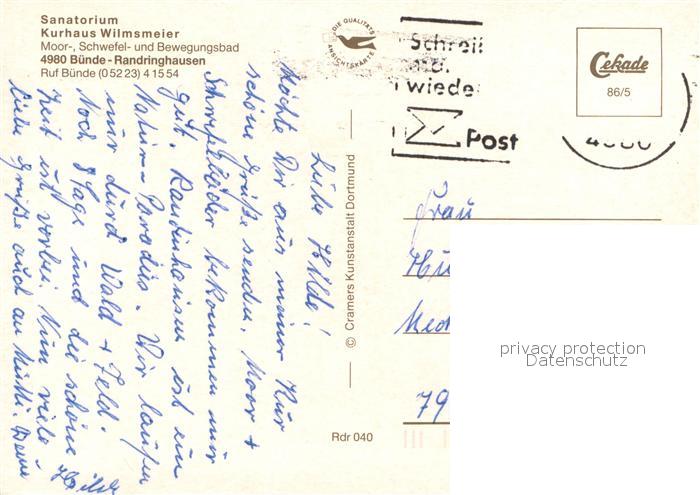 Sanatorium
Kurhaus Wilmsmeier
Moor-, Schwefel- und Bewegungsbad
4980 Bünde - Randringhausen
Ruf Bünde (0 52 23) 4 15 54
DIE QUALITÄTS
ANSICHTSKARTE
Schreib
mal
wieder
Post
Cekade
86/5
Liebe Hilde!
Möchte Dir aus meiner Kur
schöne Grüße senden. Moor +
Schwefelbäder bekommen mir
gut. Randrinhausen ist ein
Natur-Paradies. Wir laufen
nur durch Wald + Feld.
Noch 8 Tage und die schöne
Zeit ist vorbei. Nun viele
liebe Grüße auch an Deine
© Cramers Kunstanstalt Dortmund
Rdr 040
Frau
79
privacy protection
Datenschutz